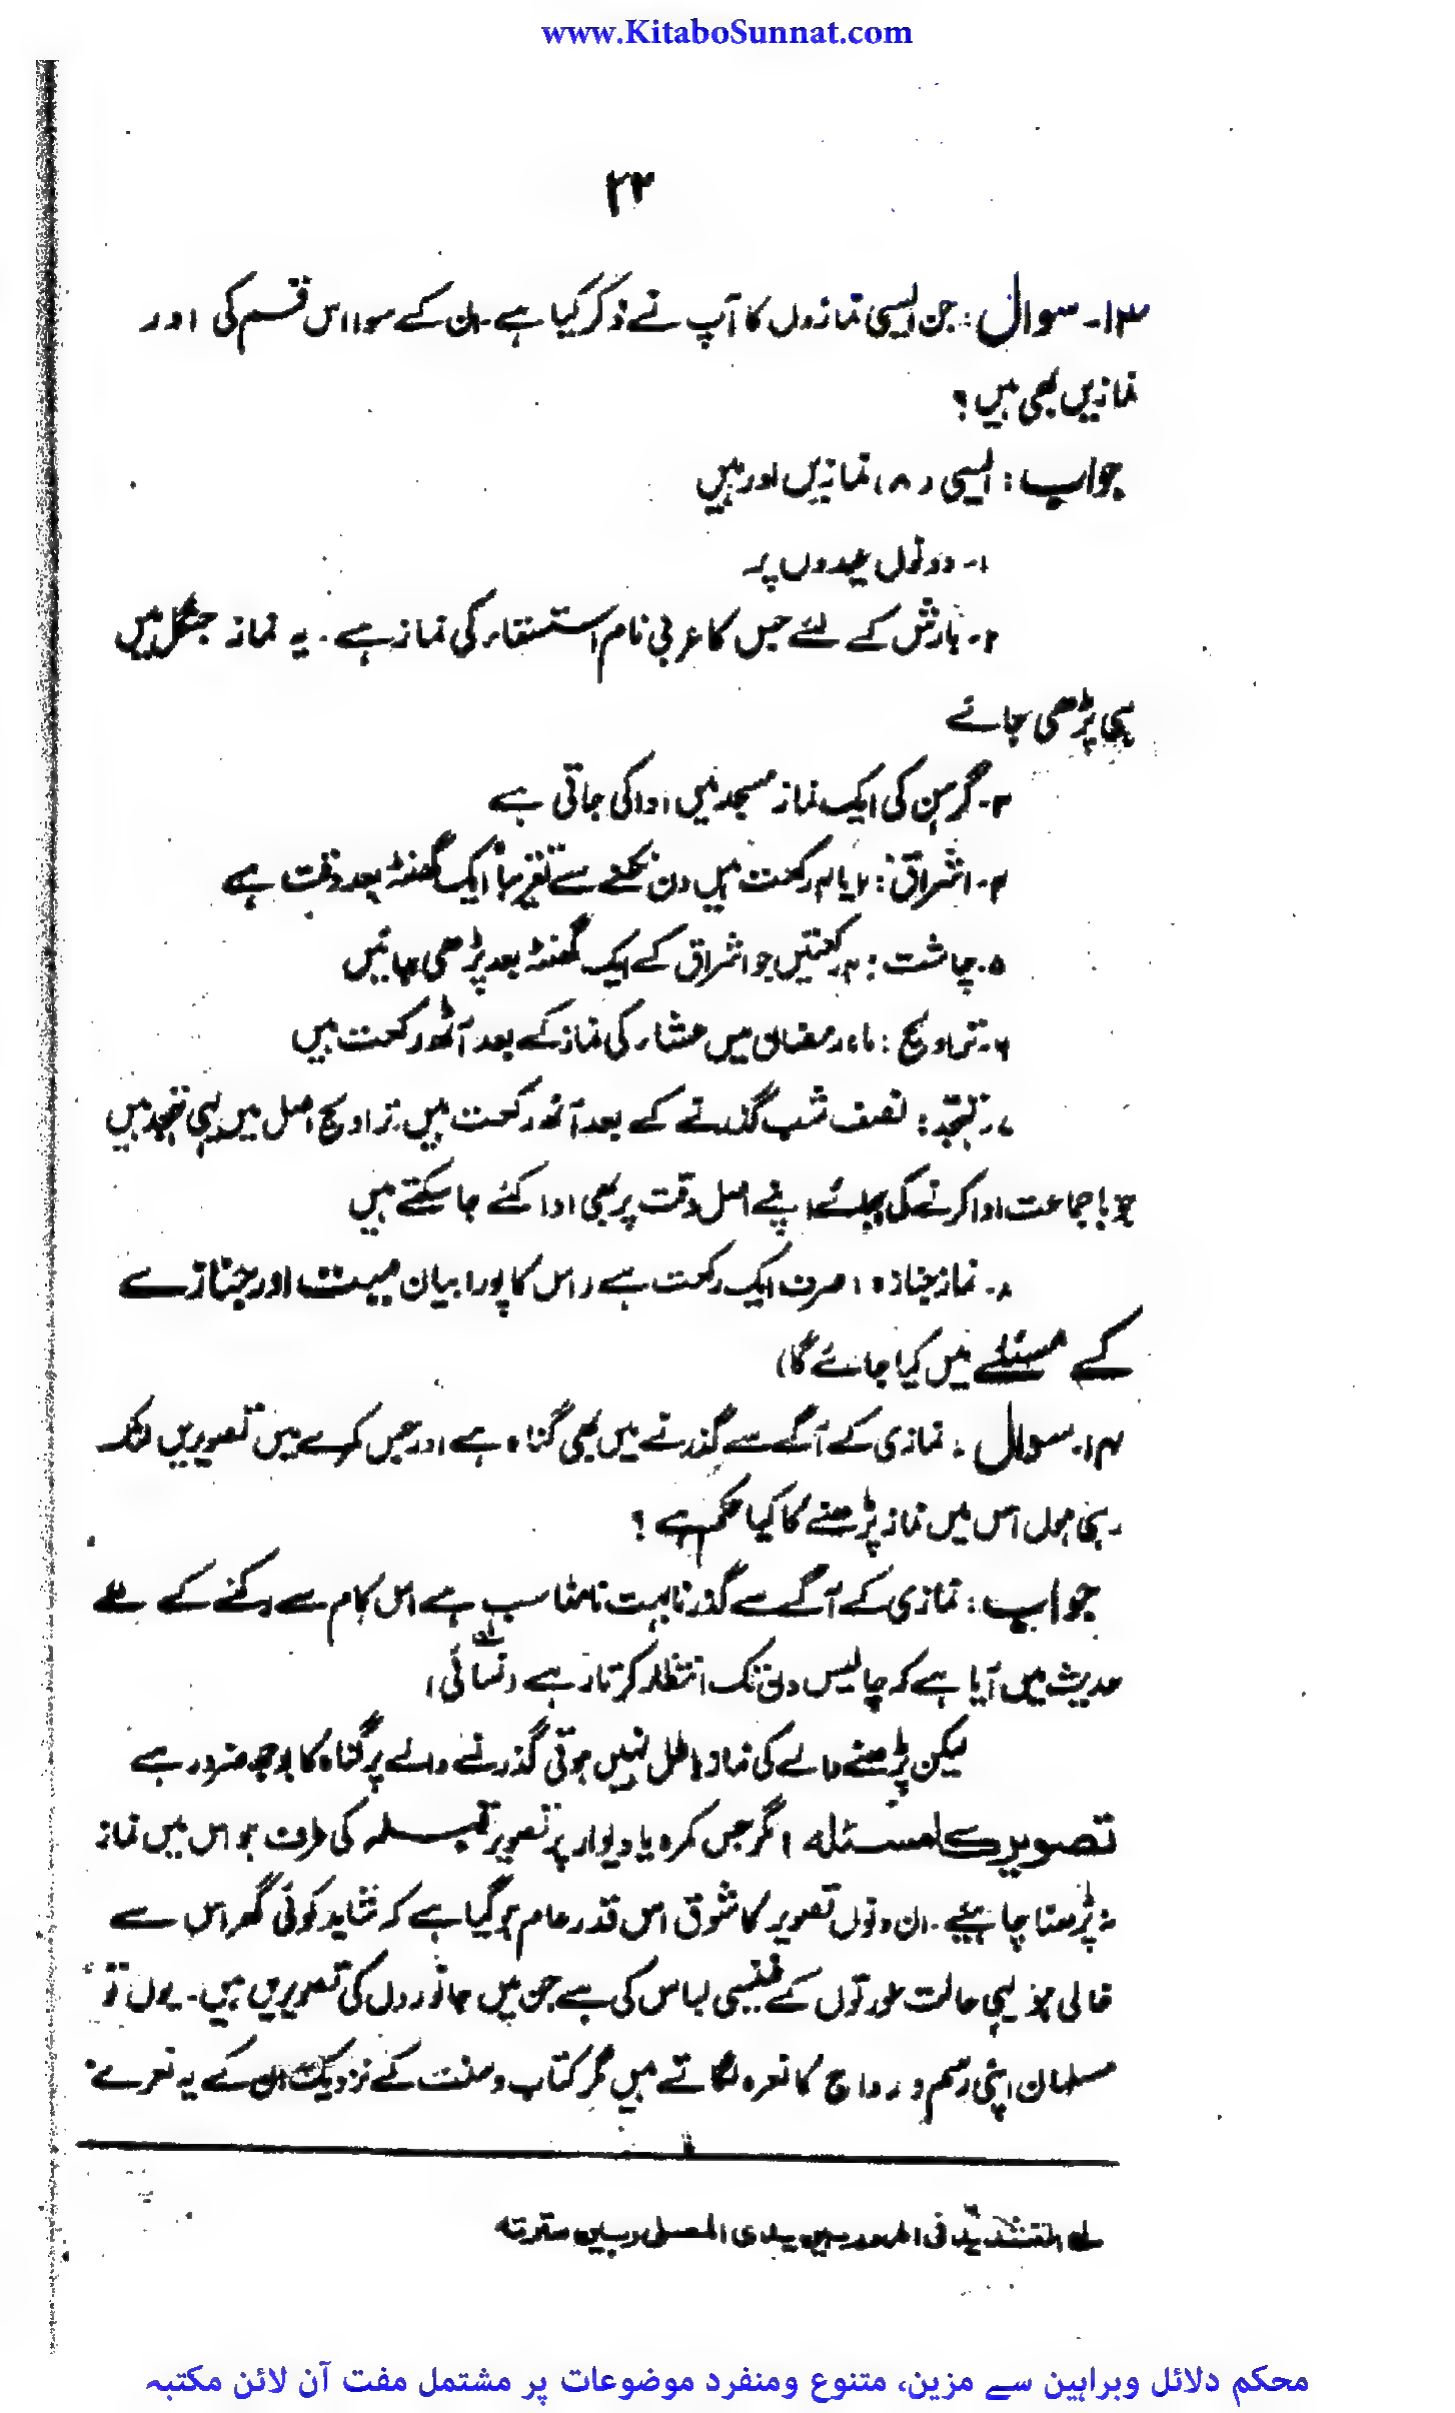 www.KitaboSunnat.com
۲۲
۱۳۔ سوال : جن ایسی نمازوں کا آپ نے ذکر کیا ہے۔ ان کے سوا اس قسم کی اور
نمازیں بھی ہیں ؟
جواب : ایسی (۸) نمازیں اور ہیں
۱۔ دونوں عیدوں پر
۲۔ بارش کے لئے جس کا عربی نام استسقاء کی نماز ہے ۔ یہ نماز جنگل میں
ہی پڑھی جائے
۳۔ گرہن کی ایک نماز مسجد میں ادا کی جاتی ہے
۴۔ اشراق : ۲ یا ۴ رکعت ہیں دن نکلنے سے تقریباً ایک گھنٹہ بعد وقت ہے
۵۔ چاشت : ۴ رکعتیں جو اشراق کے ایک گھنٹہ بعد پڑھی جائیں
۶۔ تراویح : ماہ رمضان میں عشاء کی نماز کے بعد آٹھ رکعت ہیں
۷۔ تہجد : نصف شب گذرنے کے بعد آٹھ رکعت ہیں تراویح اصل میں یہی تہجد ہیں
جو باجماعت ادا کرنے کی بجائے اپنے اصل وقت پر بھی ادا کئے جا سکتے ہیں
۸۔ نماز جنازہ : صرف ایک رکعت ہے (اس کا پورا بیان میت اور جنازے
کے مسئلے میں کیا جائے گا)
۱۴۔ سوال ۔ نمازی کے آگے سے گذرنے میں بھی گناہ ہے اور جس کمرے میں تصویریں لٹک
رہی ہوں اس میں نماز پڑھنے کا کیا حکم ہے ؟
جواب : نمازی کے آگے سے گذرنا بہت نامناسب ہے اس کام سے رکنے کے لئے
حدیث میں آیا ہے کہ چالیس دن تک انتظار کرتا رہے (نسائی)
لیکن پڑھنے والے کی نماز باطل نہیں ہوتی گذرنے والے پر گناہ کا بوجھ ضرور ہے
تصویر کا مسئلہ اگر جس کمرہ یا دیوار پر تصویر قبلہ کی طرف ہو اس میں نماز
نہ پڑھنا چاہیئے ۔ ان دنوں تصویر کا شوق اس قدر عام ہو گیا ہے کہ شاید کوئی گھر اس سے
خالی ہو یہی حالت عورتوں کے لباس کی ہے جن میں جانوروں کی تصویریں ہیں ۔ یوں تو
مسلمان اپنی رسم و رواج کا نعرہ لگاتے ہیں مگر کتاب و سنت کے نزدیک ان کے یہ نعرے
لہ التشدید فی المرور بین یدی المصلی وبین سترتہ
محکم دلائل وبراہین سے مزین، متنوع ومنفرد موضوعات پر مشتمل مفت آن لائن مکتبہ